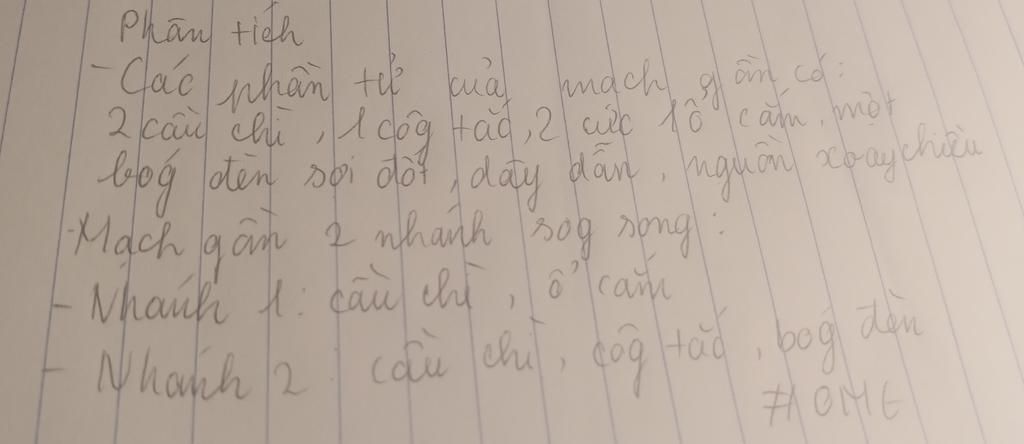 Phân tích
- Các phần tử của mạch gồm có:
2 cầu chì, 1 côg tắc, 2 cực 1 ổ cắm, một
bóg đèn sợi đốt, dây dẫn, nguồn xoay chiều
- Mạch gồm 2 nhánh sog song:
- Nhánh 1: cầu chì, ổ cắm
- Nhánh 2: cầu chì, côg tắc, bóg đèn
#HOME